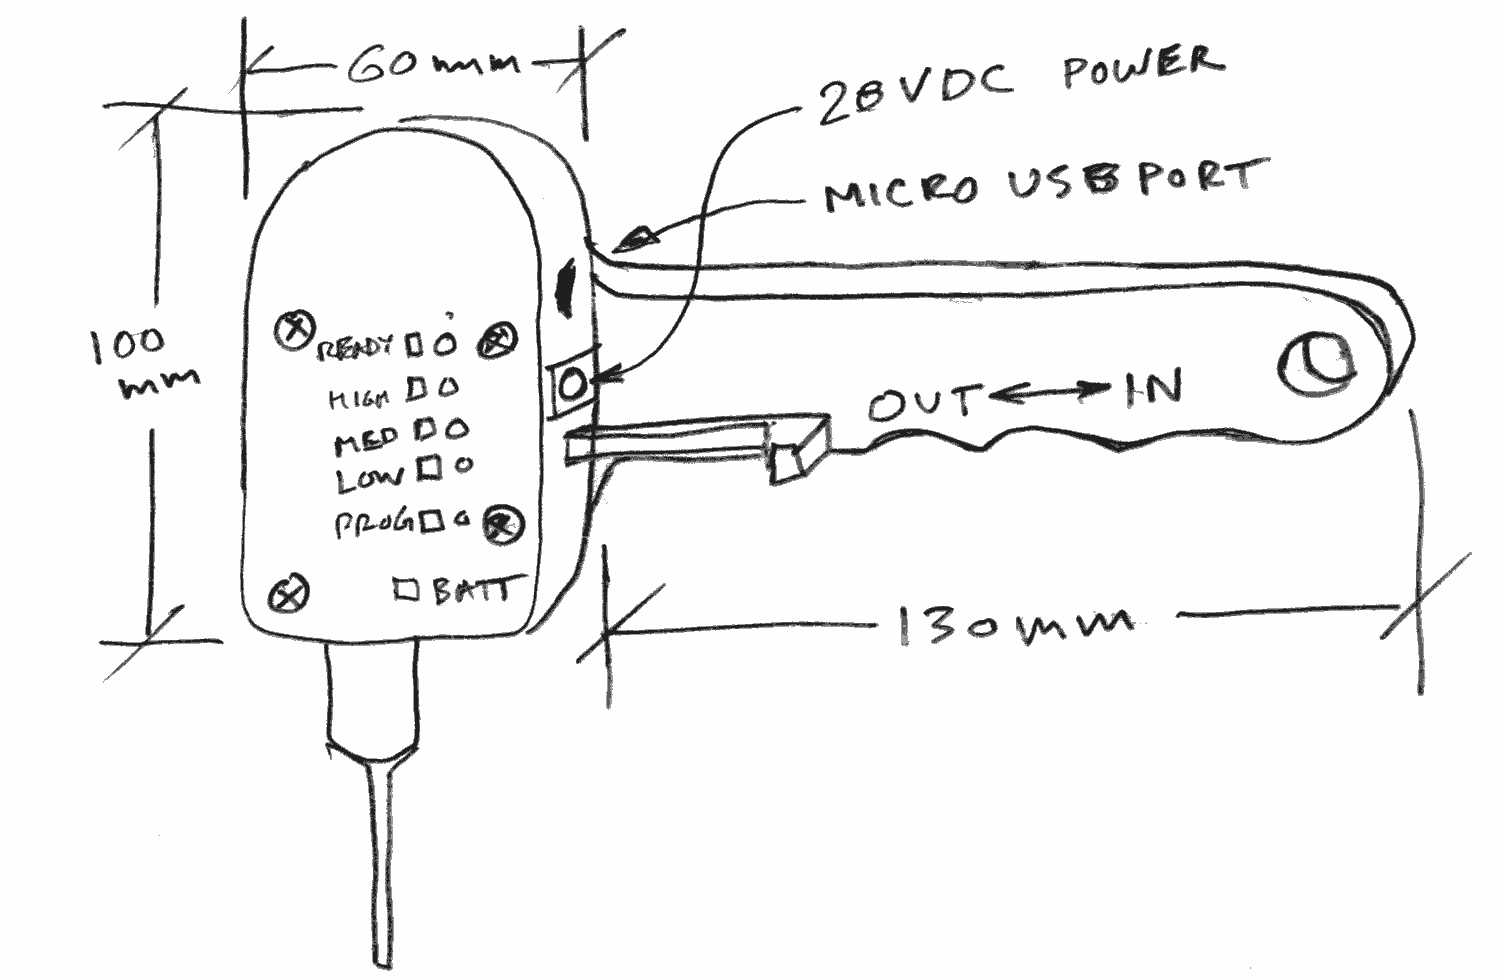 60mm
28VDC POWER
MICRO USB PORT
100
mm
READY
HIGH
MED
LOW
PROG
BATT
OUT ↔ IN
130mm